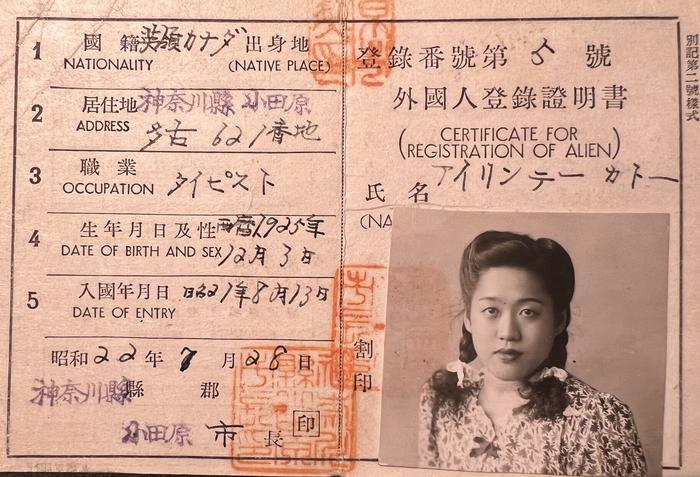 1 國籍 英領カナダ 出身地
NATIONALITY (NATIVE PLACE)
2 居住地 神奈川縣小田原
ADDRESS 多古621番地
3 職業
OCCUPATION タイピスト
4 生年月日及性 西暦1925年
DATE OF BIRTH AND SEX 12月3日
5 入國年月日 昭21年8月13日
DATE OF ENTRY
昭和22年7月28日
神奈川縣 縣 郡
小田原 市長 印
別記第二號樣式
登錄番號第5號
外國人登錄證明書
(CERTIFICATE FOR
REGISTRATION OF ALIEN)
氏名 アイリンテーカトー
(NA
割印